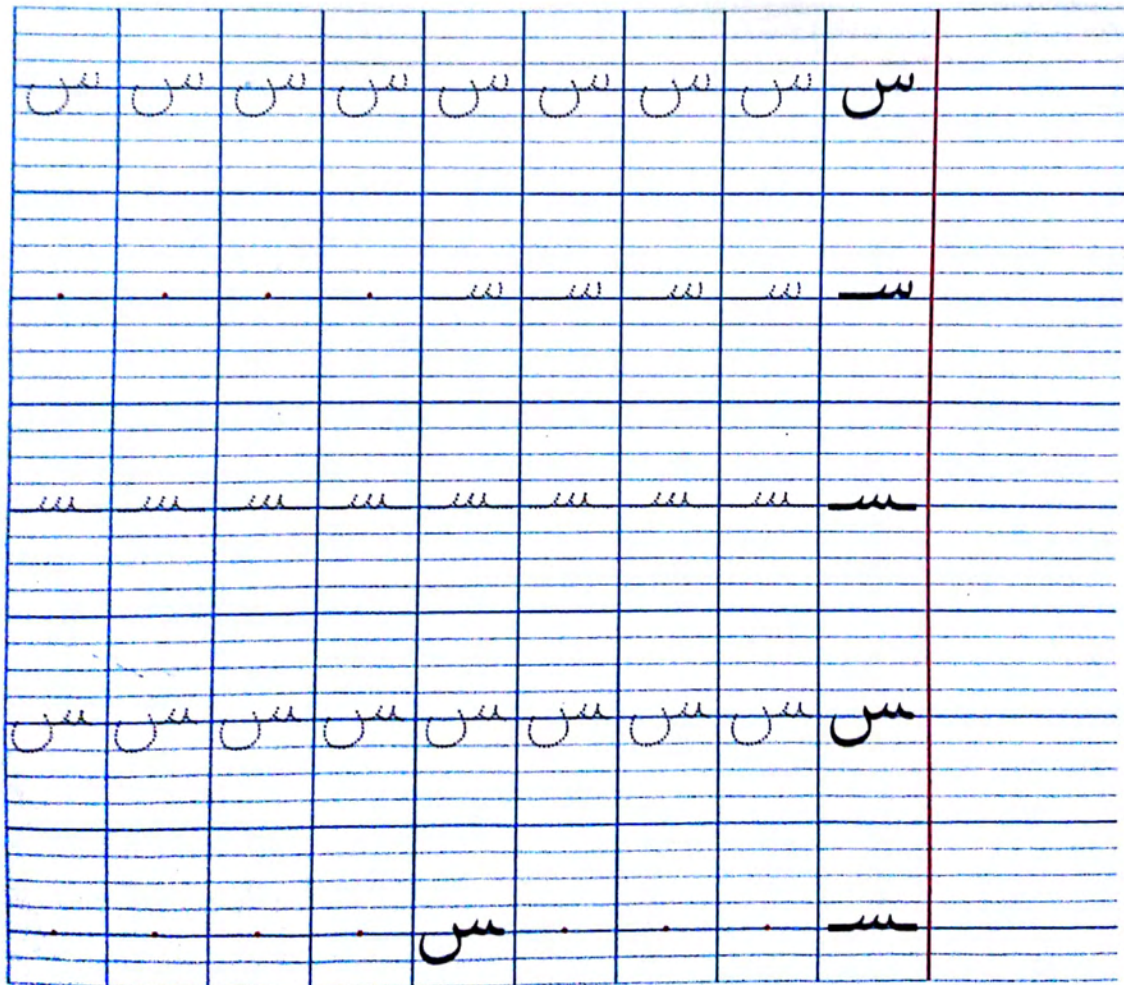 س س س س س س س س س
سـ سـ سـ سـ سـ . . . .
ـسـ ـسـ ـسـ ـسـ ـسـ ـسـ ـسـ ـسـ ـسـ
ـس ـس ـس ـس ـس ـس ـس ـس ـس
ـسـ . . . ـس . . . .